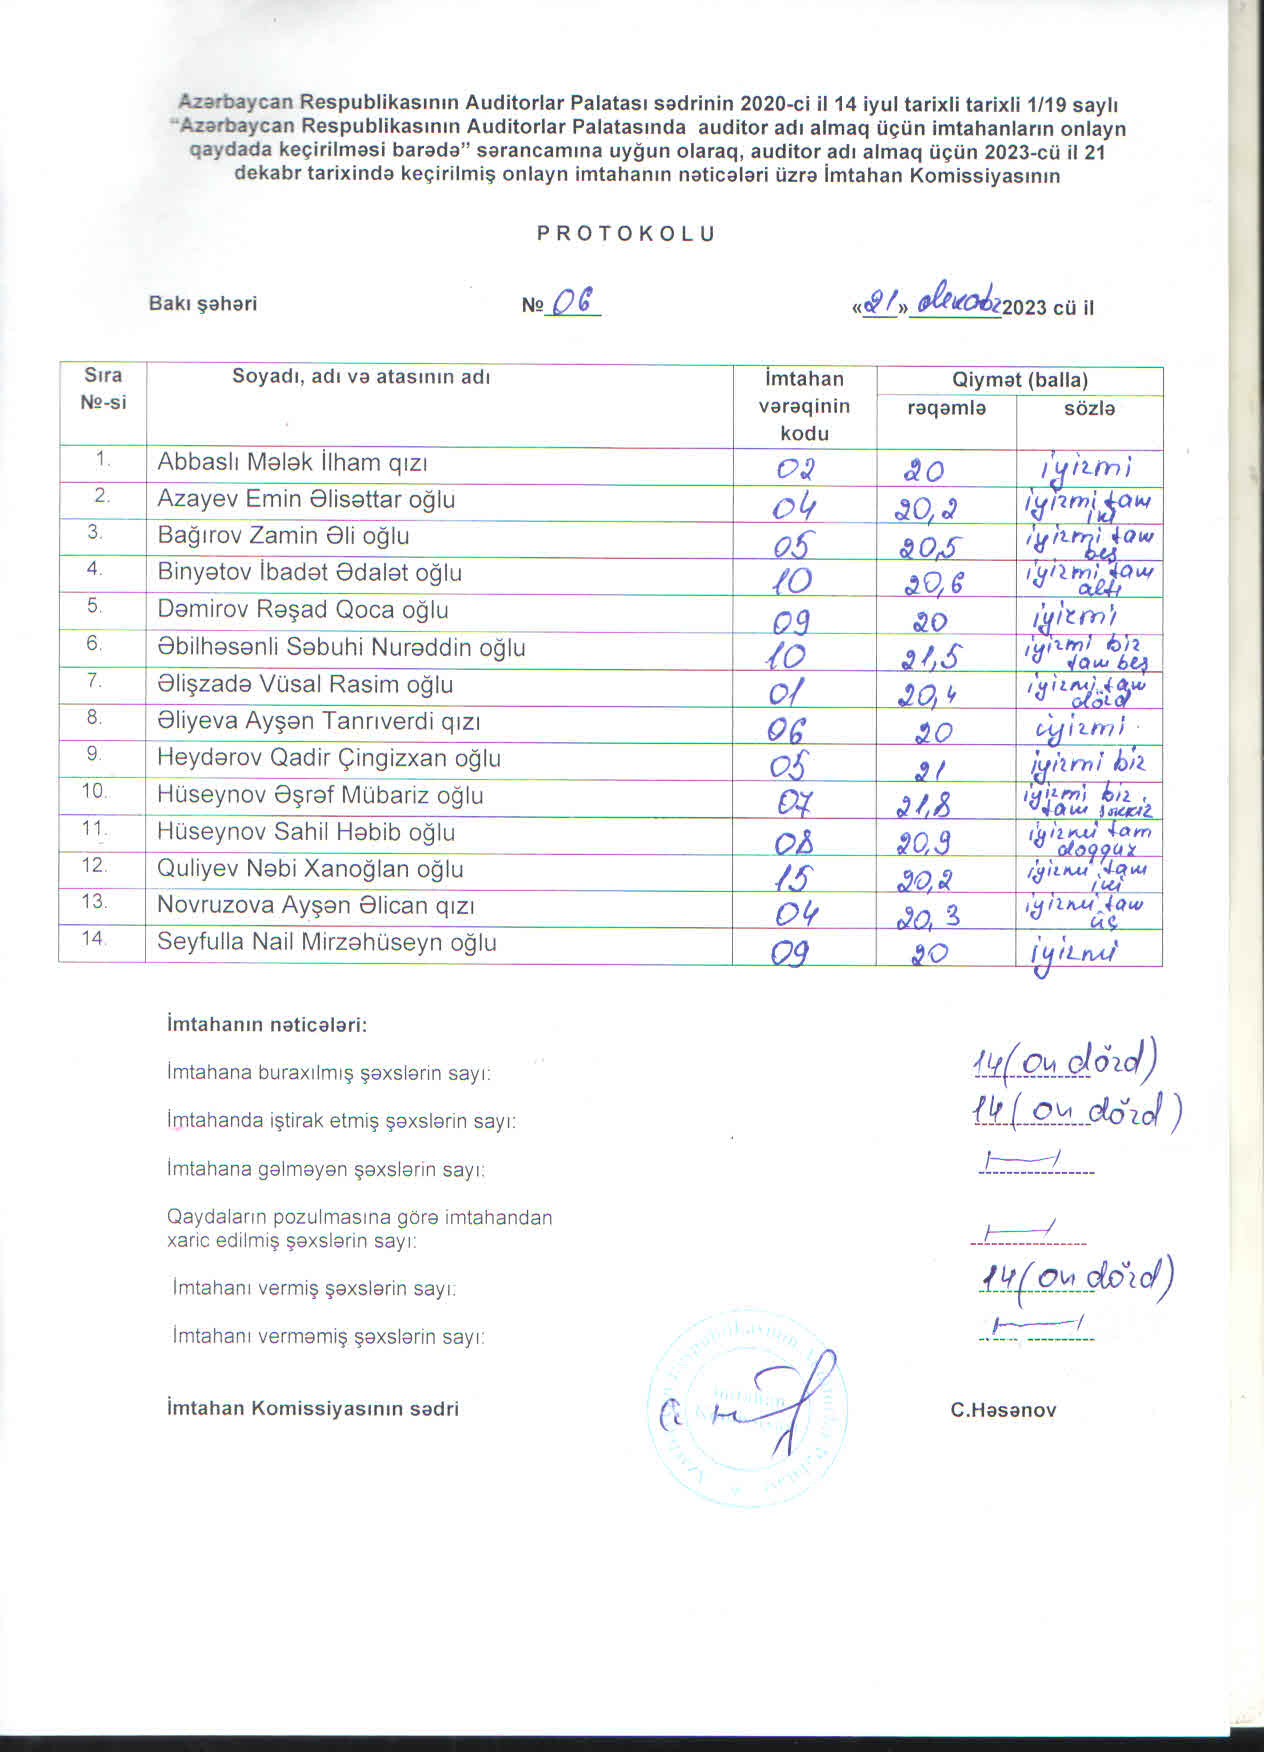 Azərbaycan Respublikasının Auditorlar Palatası sədrinin 2020-ci il 14 iyul tarixli tarixli 1/19 saylı
“Azərbaycan Respublikasının Auditorlar Palatasında auditor adı almaq üçün imtahanların onlayn
qaydada keçirilməsi barədə” sərancamına uyğun olaraq, auditor adı almaq üçün 2023-cü il 21
dekabr tarixində keçirilmiş onlayn imtahanın nəticələri üzrə İmtahan Komissiyasının
P R O T O K O L U
Bakı şəhəri № 06 «21» dekabr 2023 cü il
Sıra №-si Soyadı, adı və atasının adı İmtahan vərəqinin kodu Qiymət (balla)
rəqəmlə sözlə
1. Abbaslı Mələk İlham qızı 02 20 iyirmi
2. Azayev Emin Əlisəttar oğlu 04 20,2 iyirmi tam iki
3. Bağırov Zamin Əli oğlu 05 20,5 iyirmi tam beş
4. Binyətov İbadət Ədalət oğlu 10 20,6 iyirmi tam altı
5. Dəmirov Rəşad Qoca oğlu 09 20 iyirmi
6. Əbilhəsənli Səbuhi Nurəddin oğlu 10 21,5 iyirmi bir tam beş
7. Əlişzadə Vüsal Rasim oğlu 01 20,4 iyirmi tam dörd
8. Əliyeva Ayşən Tanrıverdi qızı 06 20 iyirmi
9. Heydərov Qadir Çingizxan oğlu 05 21 iyirmi bir
10. Hüseynov Əşrəf Mübariz oğlu 07 21,8 iyirmi bir tam səkkiz
11. Hüseynov Sahil Həbib oğlu 08 20,9 iyirmi tam doqquz
12. Quliyev Nəbi Xanoğlan oğlu 15 20,2 iyirmi tam iki
13. Novruzova Ayşən Əlican qızı 04 20,3 iyirmi tam üç
14. Seyfulla Nail Mirzəhüseyn oğlu 09 20 iyirmi
İmtahanın nəticələri:
İmtahana buraxılmış şəxslərin sayı: 14 (on dörd)
İmtahanda iştirak etmiş şəxslərin sayı: 14 (on dörd)
İmtahana gəlməyən şəxslərin sayı:
Qaydaların pozulmasına görə imtahandan
xaric edilmiş şəxslərin sayı:
İmtahanı vermiş şəxslərin sayı: 14 (on dörd)
İmtahanı verməmiş şəxslərin sayı:
İmtahan Komissiyasının sədri C.Həsənov